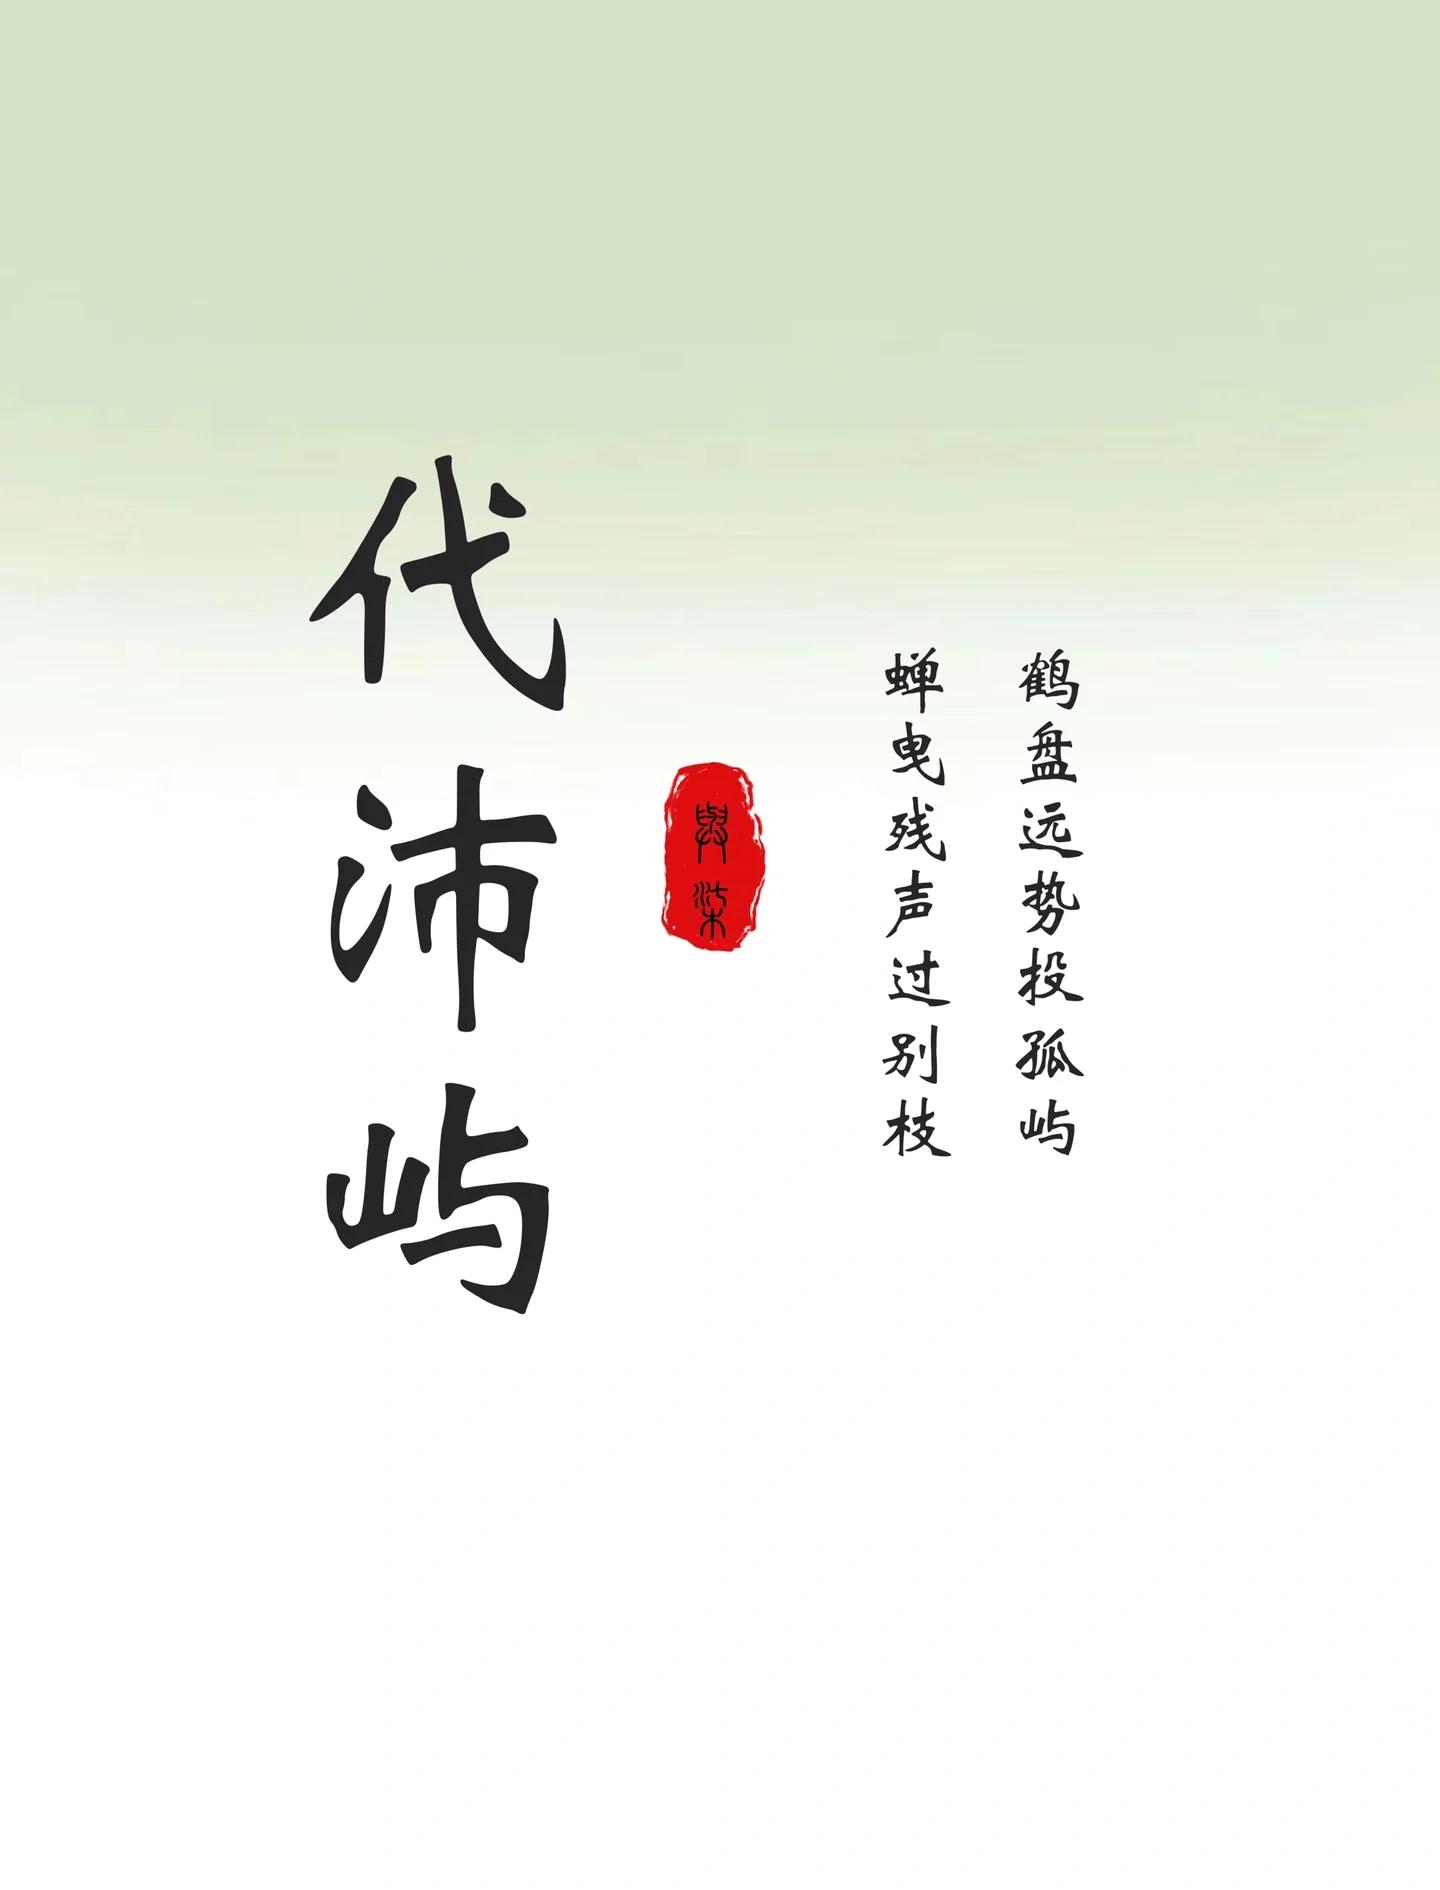 鹤盘远势投孤屿
蝉曳残声过别枝
與柒
代沛屿